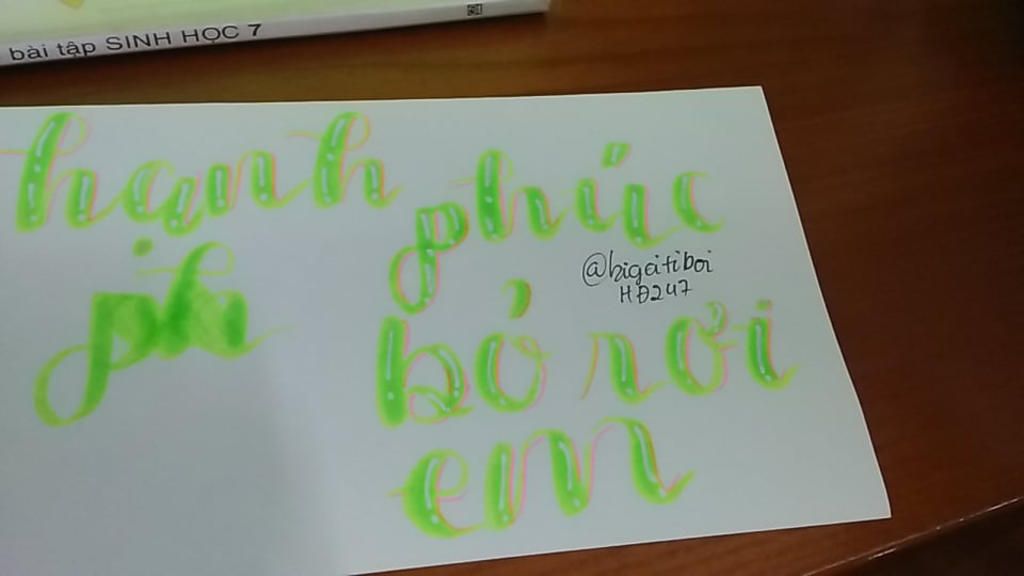 bài tập SINH HỌC 7
hạnh phúc
ph
@bigcitiboi
HĐ247
bỏ rơi
em